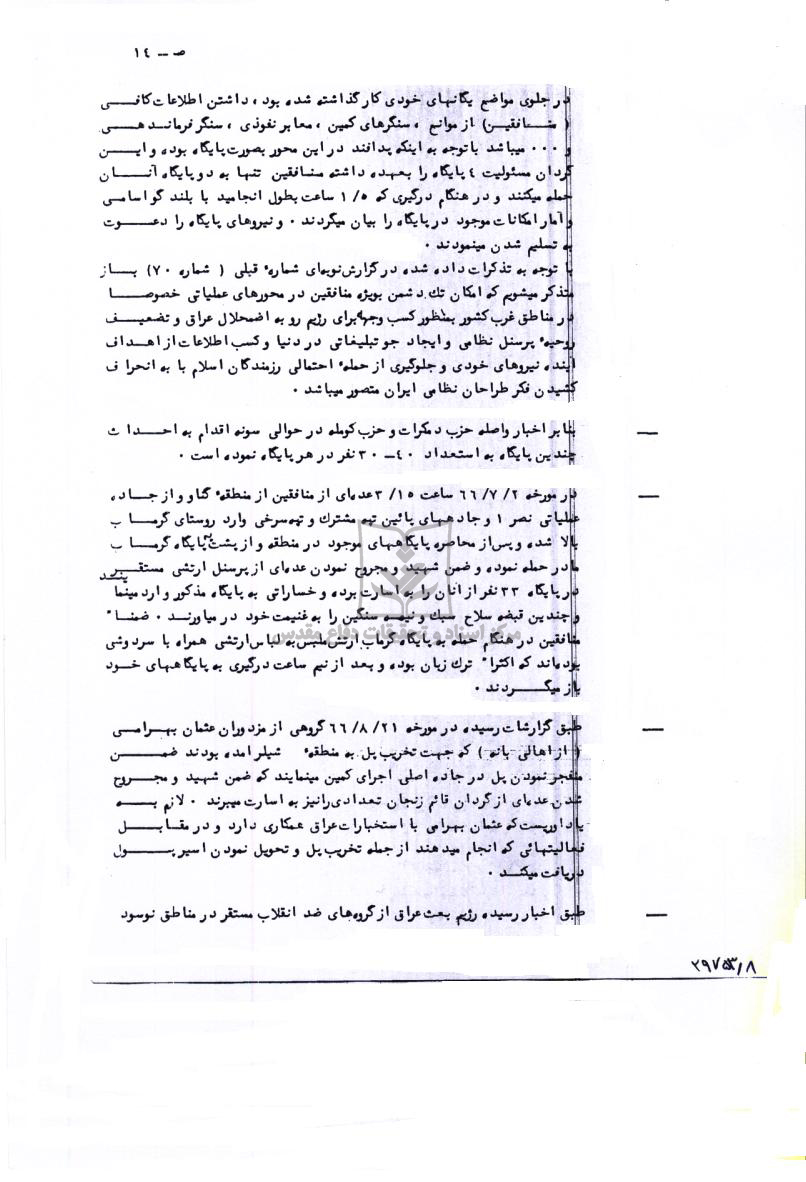 ص ــ ١٤
در جلوی مواضع یگانهای خودی کار گذاشته شده بود ، داشتن اطلاعات کافــی
( منــافقین) از موانع ، سنگرهای کمین ، معابر نفوذی ، سنگر فرماندهــی
و ۰۰۰ میباشد با توجه به اینکه پدافند در این محور بصورت پایگاه بوده و ایــن
گردان مسئولیت ٤ پایگاه را بعهده داشته منـافقین تنها به دو پایگاه آنــان
حمله میکنند و در هنگام درگیری که ۱/۵ ساعت بطول انجامید با بلند گو اسامـی
و آمار امکانات موجود در پایگاه را بیان میگردند ۰ و نیروهای پایگاه را دعــوت
به تسلیم شدن مینمودند ۰
با توجه به تذکرات داده شده در گزارش نوبه‌ای شماره قبلی ( شماره ۷۰) بــاز
متذکر میشویم که امکان تک دشمن بویژه منافقین در محورهای عملیاتی خصوصــا
در مناطق غرب کشور بمنظور کسب وجهه برای رژیم رو به اضمحلال عراق و تضعیــف
روحیه پرسنل نظامی و ایجاد جو تبلیغاتی در دنیا و کسب اطلاعات از اهــداف
آینده نیروهای خودی و جلوگیری از حمله احتمالی رزمندگان اسلام با به انحراف
کشیدن فکر طراحان نظامی ایران متصور میباشد ۰
ــ بنا بر اخبار واصله حزب دمکرات و حزب کومله در حوالی سونه اقدام به احــداث
چندین پایگاه به استعداد ۴۰ــ ۳۰ نفر در هر پایگاه نموده است ۰
ــ در مورخه ۶۶/۷/۲ ساعت ۳/۱۵ عده‌ای از منافقین از منطقه گلو و از جــاده
عملیاتی نصر ۱ و جاده‌های پائین تپه مشترک و تپه سرخی وارد روستای گرمــاب
بالا شده و پس از محاصره پایگاههای موجود در منطقه و از پشت به پایگاه گرمــاب
مادر حمله نموده و ضمن شهید و مجروح نمودن عده‌ای از پرسنل ارتشی مستقــر
در پایگاه ۳۳ نفر از آنان را به اسارت برده و خساراتی به پایگاه مذکور وارد مینمایند
و چندین قبضه سلاح سبک و نیمه سنگین را به غنیمت خود در میاورنــد ۰ ضمنــا"
منافقین در هنگام حمله به پایگاه گرماب ارتش ملبس به لباس ارتشی همراه با سردوشی
بوده‌اند که اکثرا" ترک زبان بوده و بعد از نیم ساعت درگیری به پایگاههای خــود
باز میگــردند ۰
ــ طبق گزارشات رسیده در مورخه ۶۶/۸/۲۱ گروهی از مزدوران عثمان بهــرامــی
( از اهالی بانه ) که جهت تخریب پل به منطقه شیلر آمده بودند ضمــن
منفجر نمودن پل در جاده اصلی اجرای کمین مینمایند که ضمن شهید و مجــروح
شدن عده‌ای از گردان قائم زنجان تعدادی را نیز به اسارت میبرند ۰ لازم بــه
یادآوریست که عثمان بهرامی با استخبارات عراق همکاری دارد و در مقابــل
فعالیتهائی که انجام میدهند از جمله تخریب پل و تحویل نمودن اسیر پــول
دریافت میکنــد ۰
ــ طبق اخبار رسیده رژیم بعث عراق از گروههای ضد انقلاب مستقر در مناطق نوسود
مرکز اسناد و تحقیقات دفاع مقدس